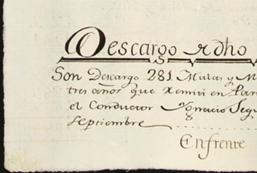 Descargo r dho
Son Descargo 281 Mulas y M
tres años que Remiti en Par
el Conductor Ygnacio Segu
Septiembre 8
Enfrente